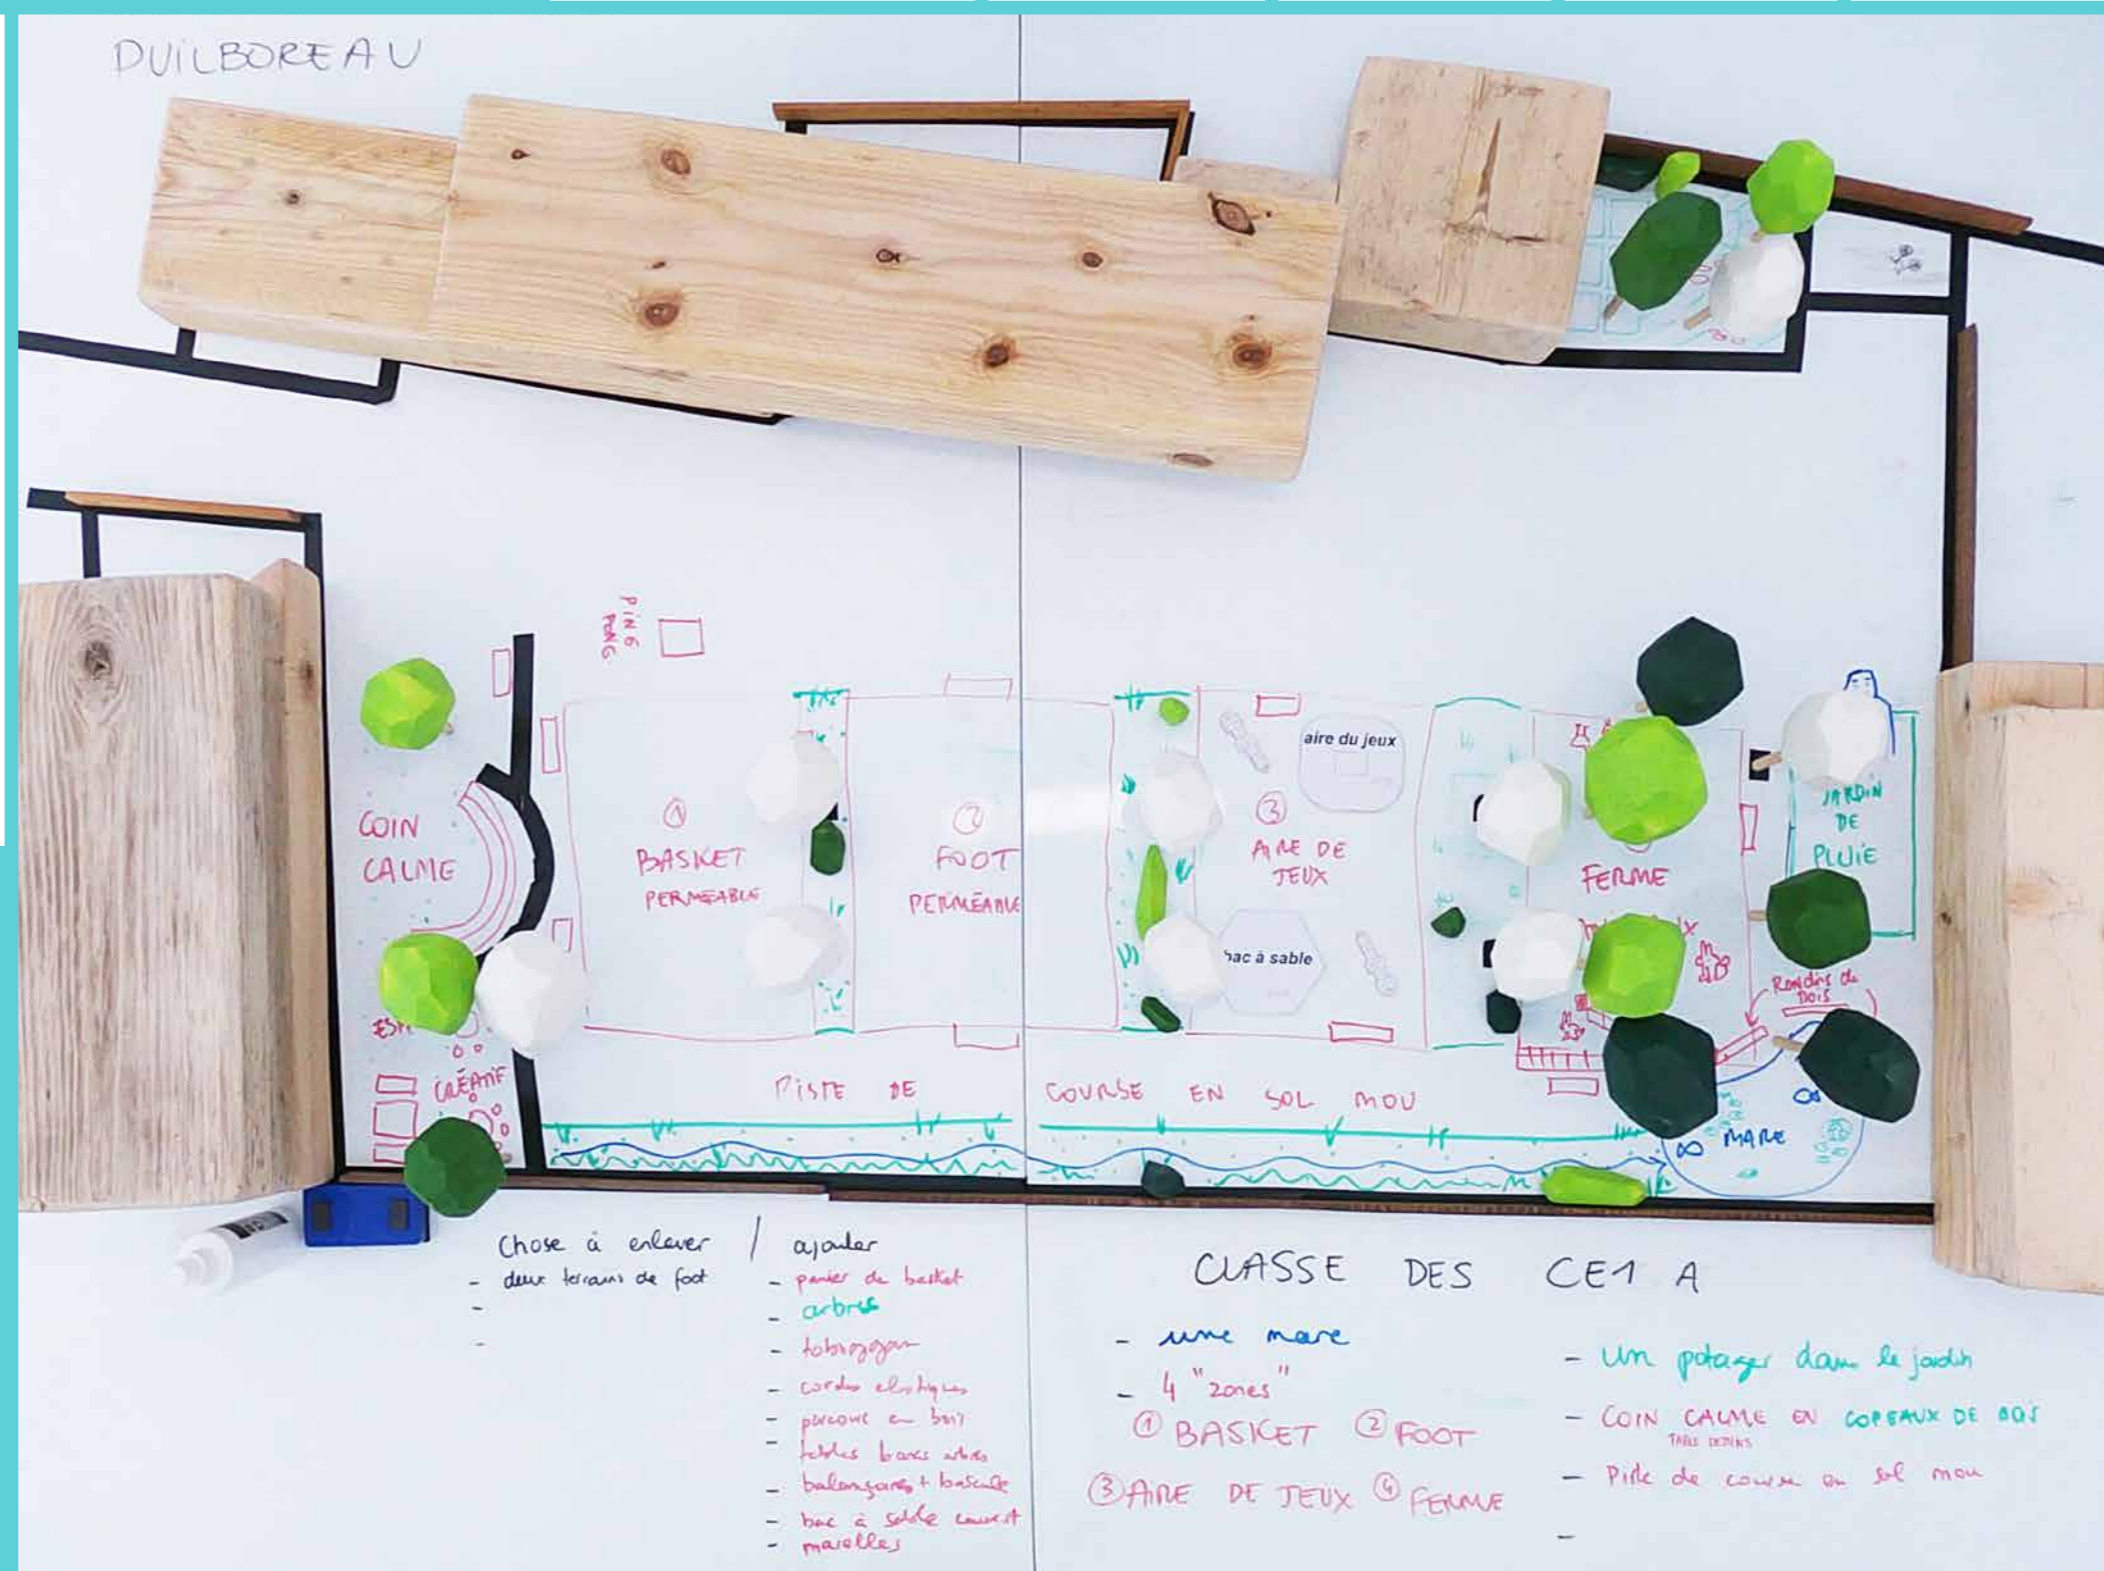 DUILBOREAU
PING
PONG
COIN
CALME
①
BASKET
PERMÉABLE
②
FOOT
PERMÉABLE
aire du jeux
③
AIRE DE
JEUX
bac à sable
FERME
JARDIN
DE
PLUIE
Rondins de
bois
CRÉATIF
PISTE DE COURSE EN SOL MOU
MARE
Chose à enlever / ajouter
- deux terrains de foot
-
-
- panier de basket
- arbres
- toboggan
- cordes elastiques
- parcours en bois
- tables bancs arbres
- balançoires + bascule
- bac à sable couvert
- marelles
CLASSE DES CE1 A
- une mare
- 4 "zones"
① BASKET ② FOOT
③ AIRE DE JEUX ④ FERME
- Un potager dans le jardin
- COIN CALME EN COPEAUX DE BOIS
- Piste de course en sol mou
-